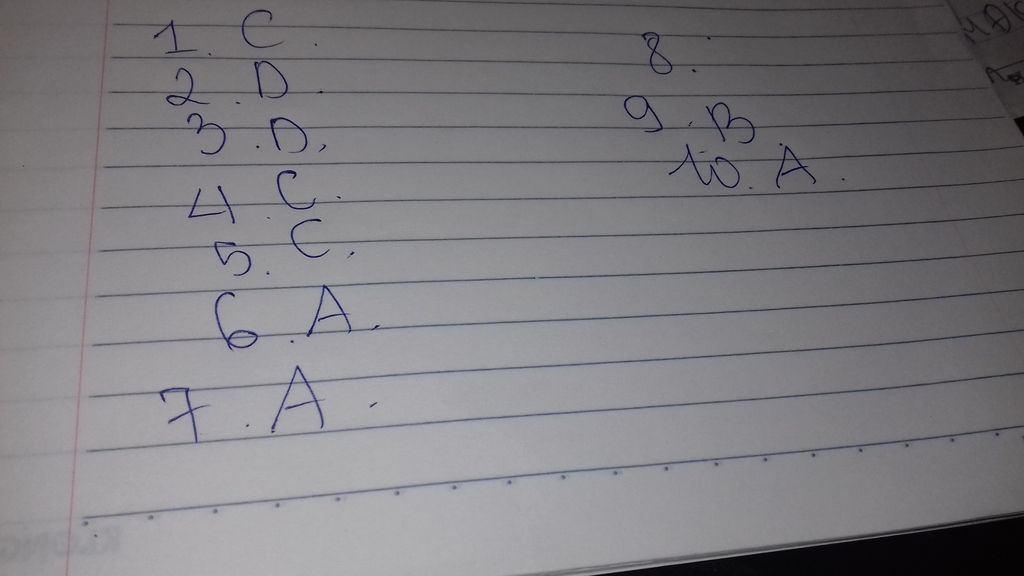 1. C.
2. D.
3. D.
4. C.
5. C.
6. A.
7. A.
8.
9. B
10. A.